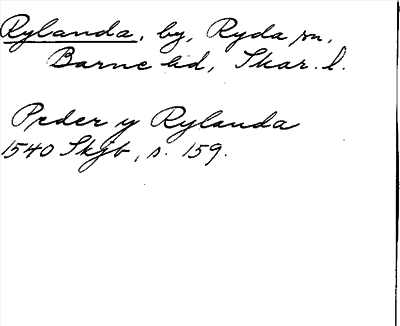 Rylanda, by, Ryda sn,
Barne hd, Skar. l.
Peder y Rylanda
1540 Skjb, s. 159.